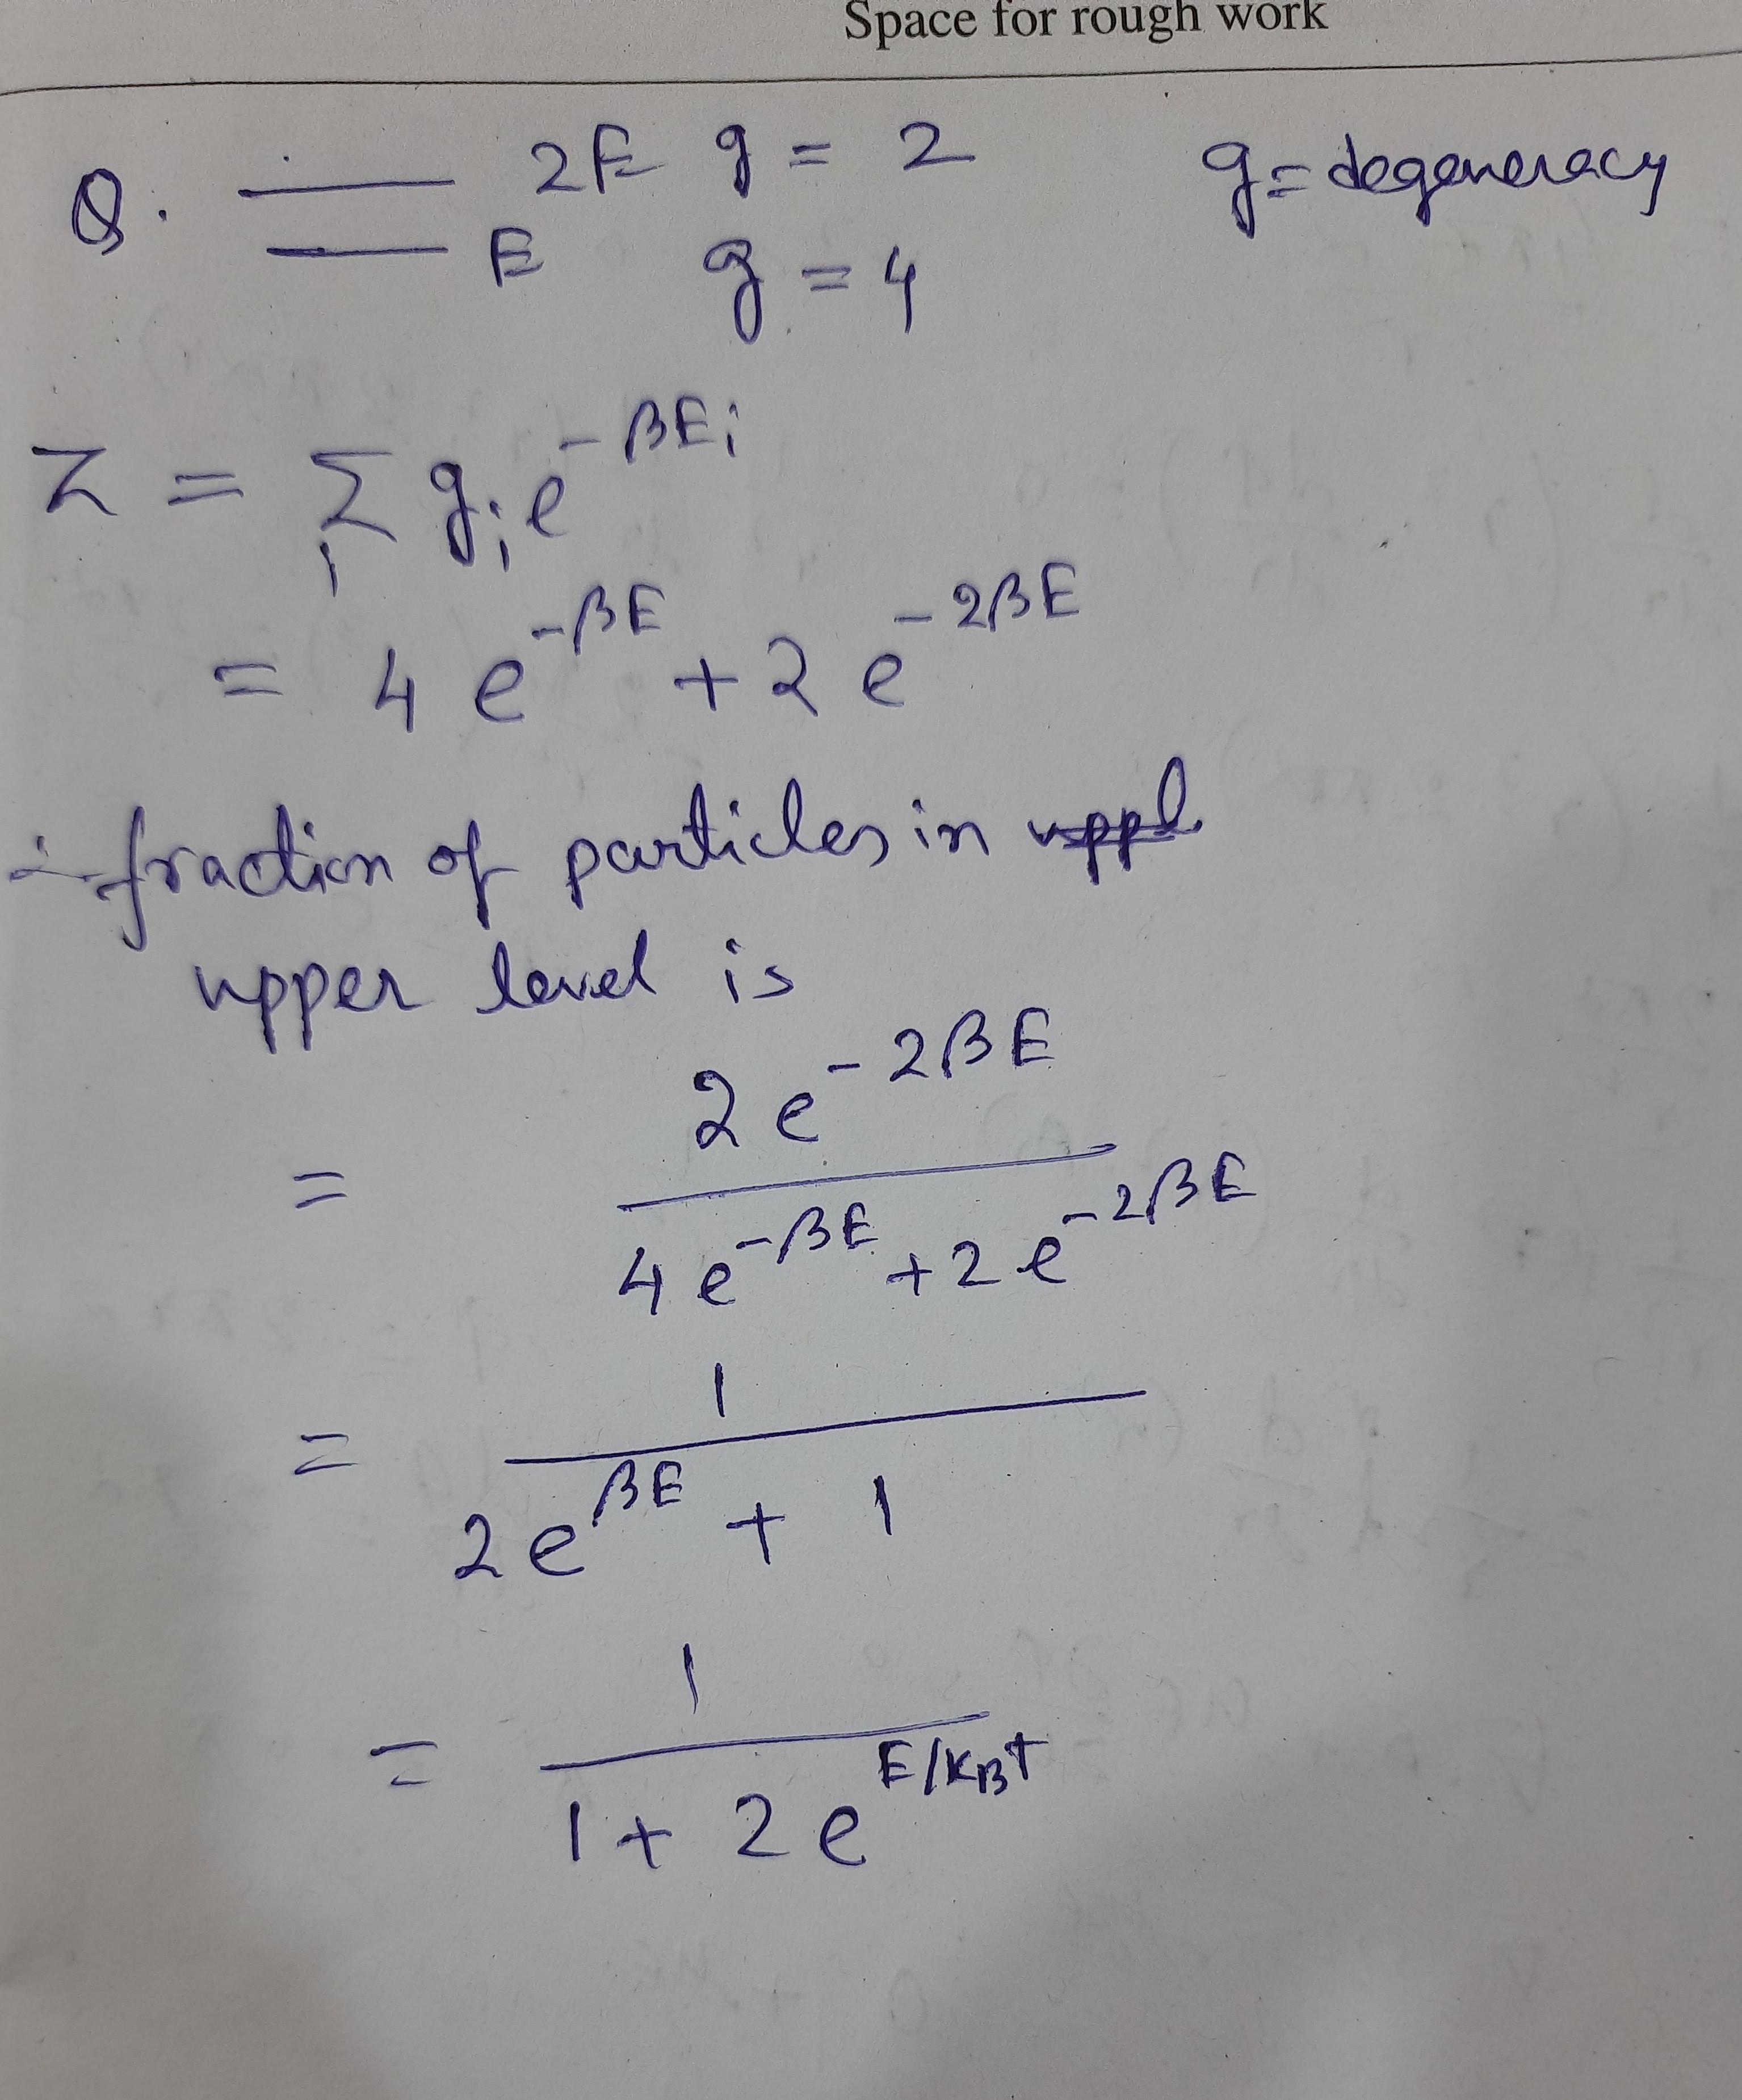 Space for rough work
Q. 2E g = 2 g = degeneracy
E g = 4
Z = Σ_i g_i e^{-βE_i}
= 4 e^{-βE} + 2 e^{-2βE}
∴ fraction of particles in uppl
upper level is
= 2 e^{-2βE} / 4 e^{-βE} + 2 e^{-2βE}
= 1 / 2 e^{βE} + 1
= 1 / 1 + 2 e^{E/K_BT}